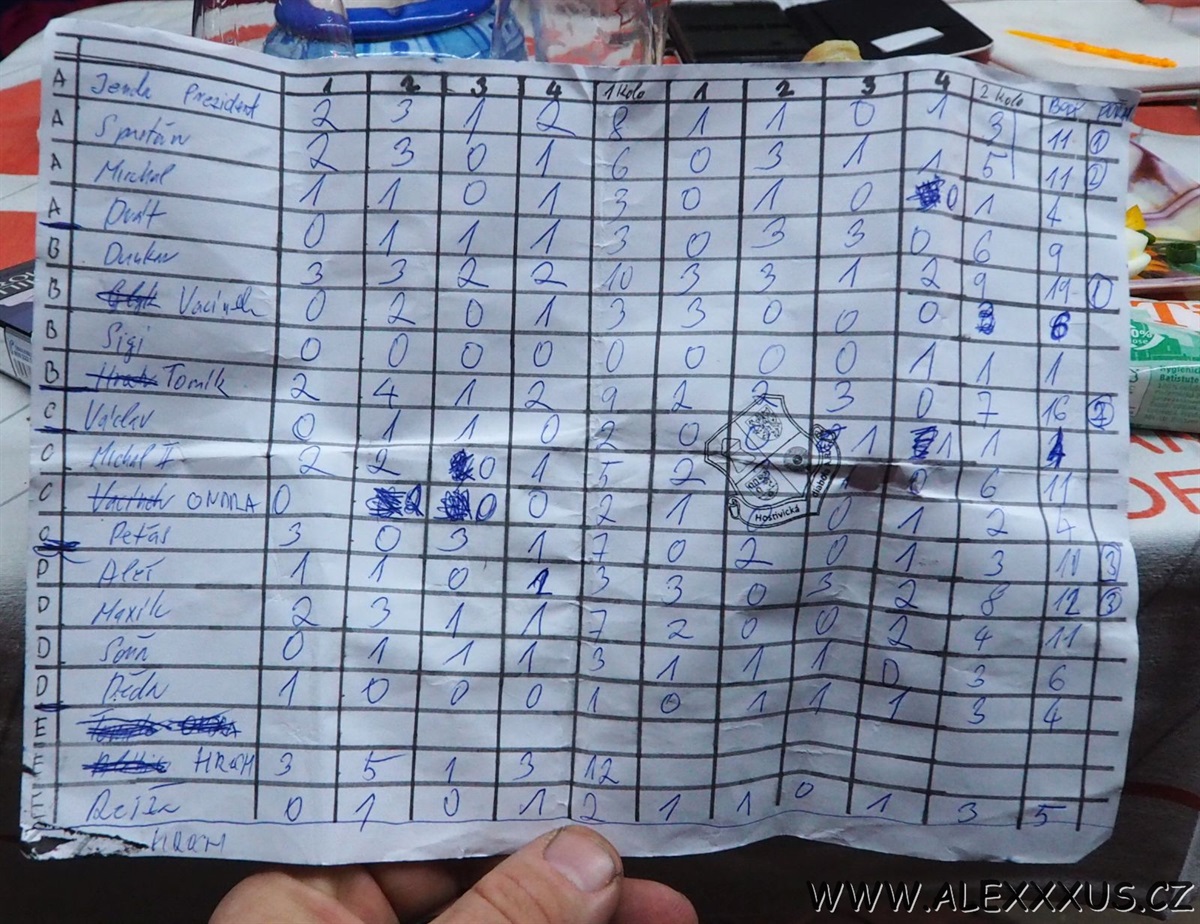 1 2 3 4 1 kolo 1 2 3 4 2 kolo
A Jenda Prezident 2 3 1 2 8 1 1 0 1 3 11 1
A 2 3 0 1 6 0 3 1 1 5 11 2
A Michal 1 1 0 1 3 0 1 0 0 1 4
A 0 1 1 1 3 0 3 3 0 6 9
B 3 3 2 2 10 3 3 1 2 9 19 1
B 0 2 0 1 3 3 0 0 0 3 6
B Sigi 0 0 0 0 0 0 0 0 1 1 1
B Tomík 2 4 1 2 9 2 2 3 0 7 16 2
C Václav 0 1 1 0 2 0 1 1 1
C Michal II 2 2 0 1 5 2 0 6 11
C ONDRA 0 2 0 0 2 1 0 1 2 4
C Peťas 3 0 3 1 7 0 2 0 1 3 10 3
D Aleš 1 1 0 1 3 3 0 3 2 8 12 3
D Maxik 2 3 1 1 7 2 0 0 2 4 11
D Soňa 0 1 1 1 3 1 1 1 0 3 6
D Děda 1 0 0 0 1 0 1 1 1 3 4
E
E HROM 3 5 1 3 12
E 0 1 0 1 2 1 1 0 1 3 5
HROM
Hoštivická
WWW.ALEXXXUS.CZ